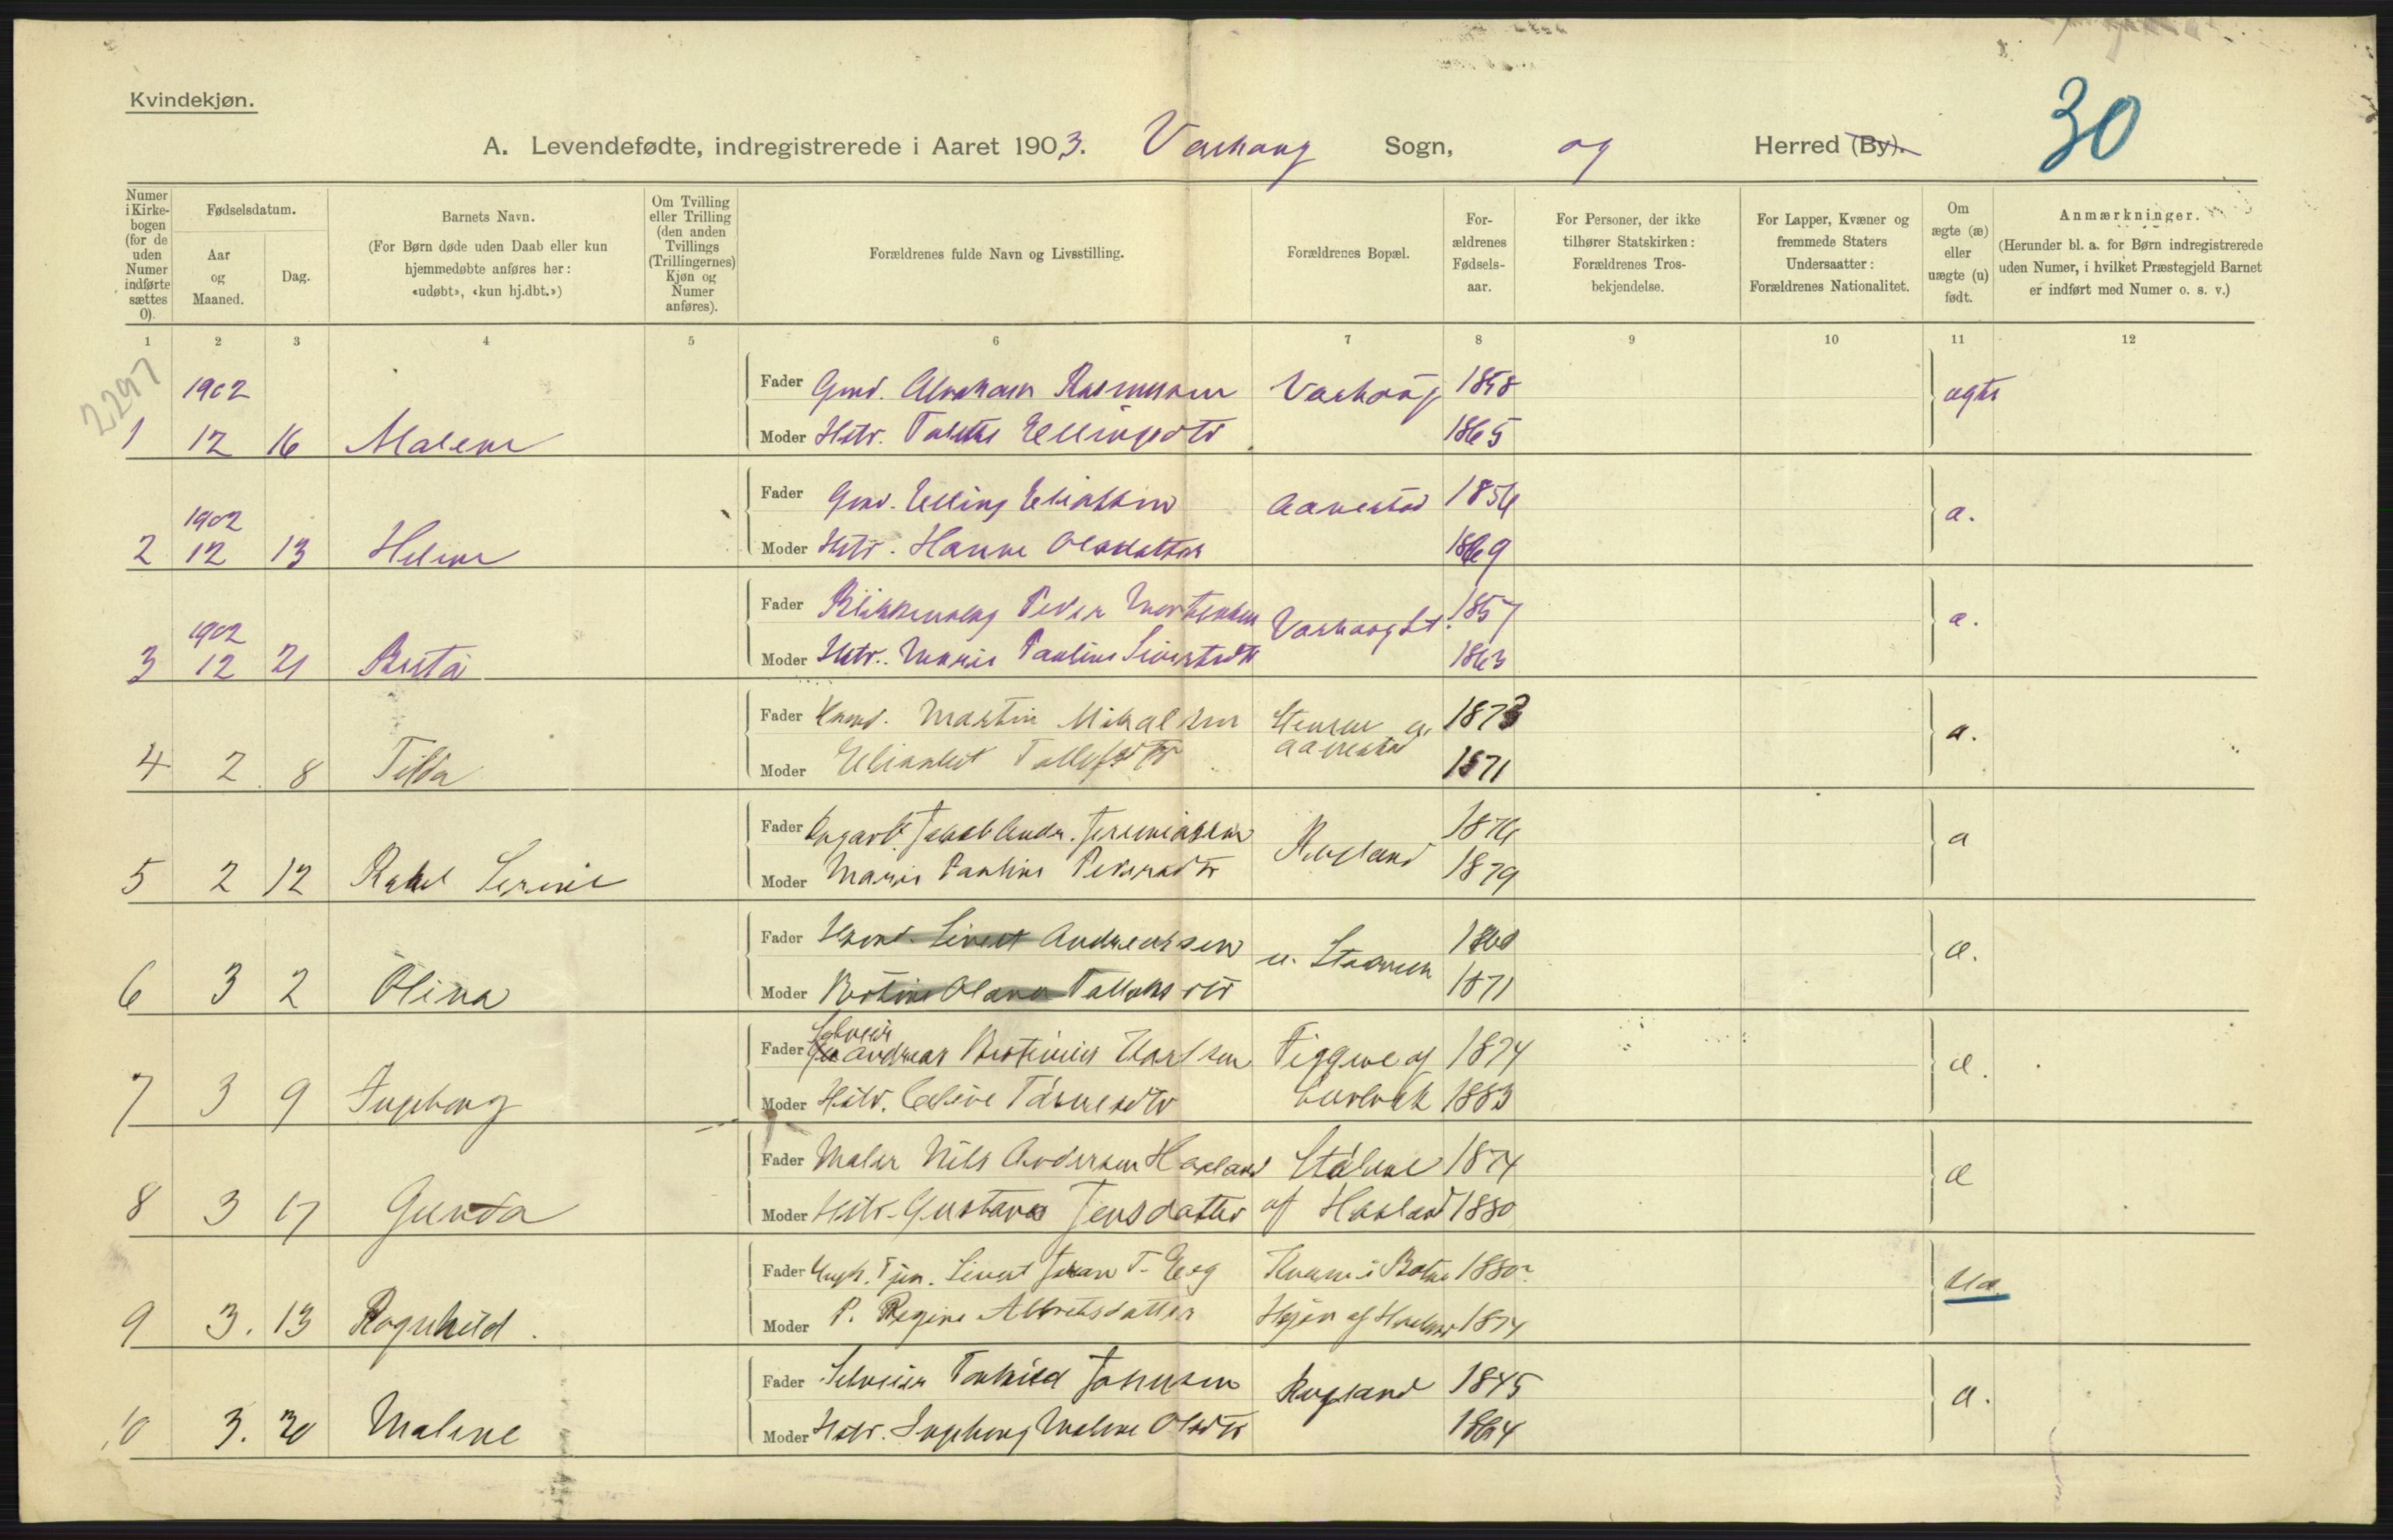 Kvindekjøn.
30
A. Levendefødte, indregistrerede i Aaret 1903. Varhaug Sogn, og Herred (By).
Numer i Kirkebogen (for de uden Numer indførte sættes 0).
Fødselsdatum.
Aar og Maaned.
Dag.
Barnets Navn.
(For Børn døde uden Daab eller kun hjemmedøbte anføres her: «udøbt», «kun hj.dbt.»)
Om Tvilling eller Trilling (den anden Tvillings (Trillingernes) Kjøn og Numer anføres).
Forældrenes fulde Navn og Livsstilling.
Forældrenes Bopæl.
Forældrenes Fødselsaar.
For Personer, der ikke tilhører Statskirken: Forældrenes Trosbekjendelse.
For Lapper, Kvæner og fremmede Staters Undersaatter: Forældrenes Nationalitet.
Om ægte (æ) eller uægte (u) født.
Anmærkninger.
(Herunder bl. a. for Børn indregistrerede uden Numer, i hvilket Præstegjeld Barnet er indført med Numer o. s. v.)
1 2 3 4 5 6 7 8 9 10 11 12
2297
1902 Fader Gmd. Abraham Rasmussen Varhaug 1858 ægte
1 12 16 Malene Moder Hstr. Ellingsdtr 1865
1902 Fader Gmd. Elling Eliassen Aanestad 1856 æ.
2 12 13 Helene Moder Hstr. Hanne Olsdatter 1869
1902 Fader Peder Mortensen Varhaug St. 1857 æ.
3 12 21 Berta Moder Hstr. Marie Pauline Sivertsdtr 1863
Fader Martin Mikalsen af Aanestad 1873 æ.
4 2 8 Tilda Moder Elisabet 1871
Fader Jakob Andr. Jeremiassen Rugland 1876 æ
5 2 12 Rakel Serine Moder Marie Pauline Pedersdtr 1879
Fader Sivert Andreassen 1868 æ.
6 3 2 Olina Moder Bertine Olava 1871
Fader Selveier Andreas Bertinius Karlsen af 1874 æ.
7 3 9 Ingeborg Moder Hstr. 1883
Fader Maler Nils Andersen Haaland 1874 æ
8 3 17 Gunda Moder Hstr. Gustava Jensdatter af Haaland 1880
Fader Ungk. Tjen. Sivert Johan T. Eeg 1880 ua.
9 3. 13 Ragnhild. Moder P. Regine Albretsdatter af 1874
Fader Selveier Torkild Johnsen Rugland 1845 æ.
10 3. 30 Malene Moder Hstr. Ingeborg Malene Olsdtr 1864